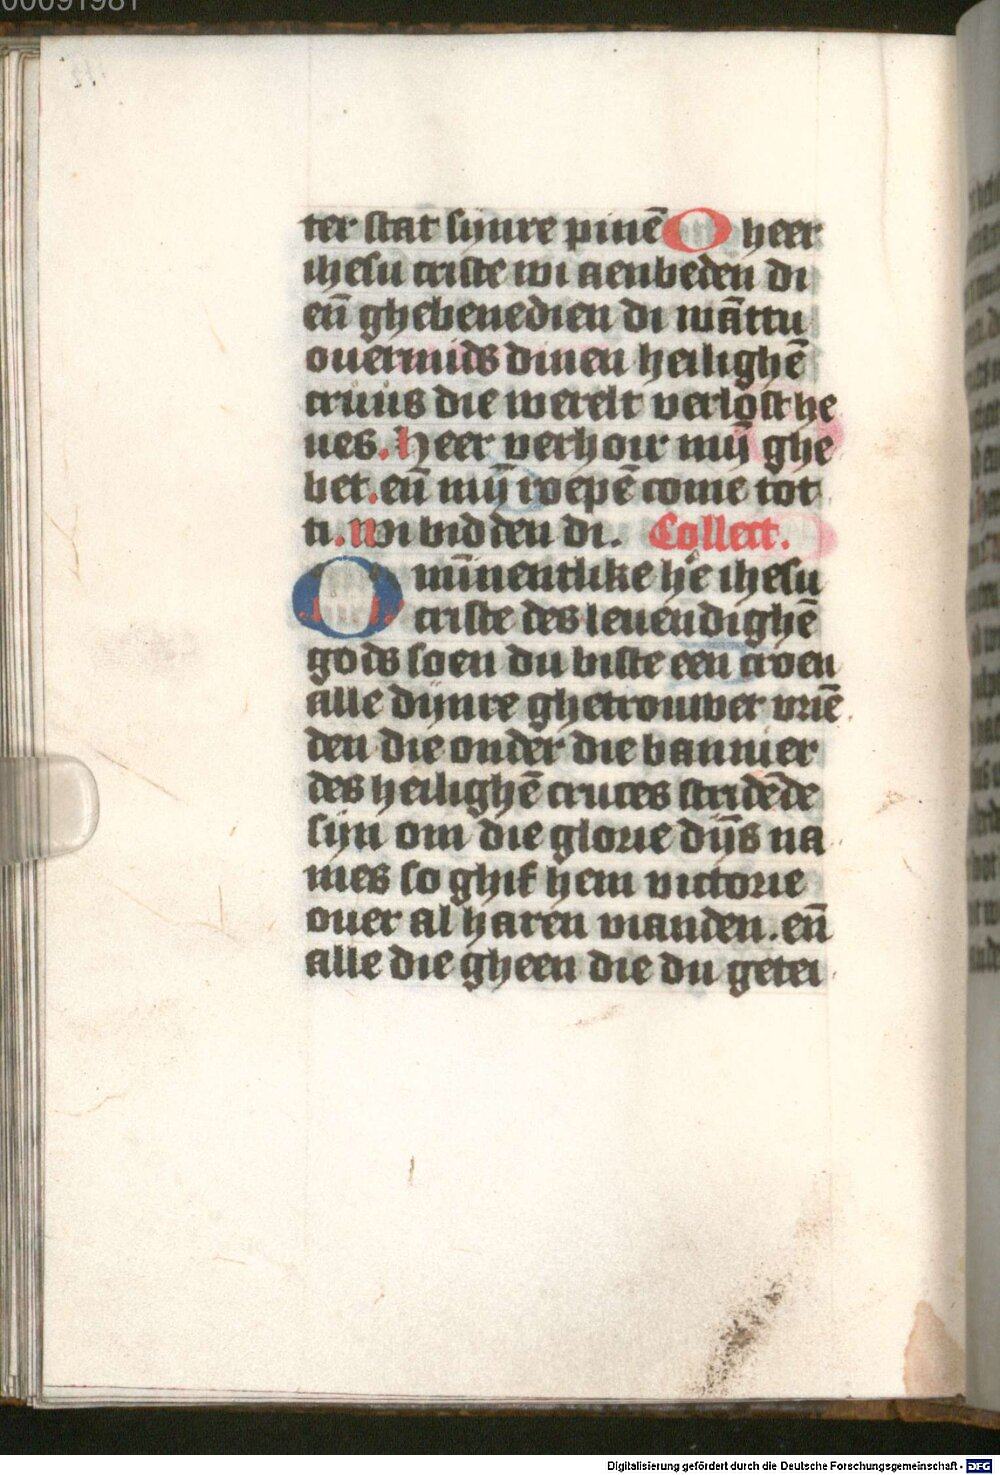 00091981
ter stat sijnre pinē O heer
ihesu criste wi aenbeden di
eñ ghebenedien di wāttu
ouermids dinen heilighē
cruus die werelt verlost he
ues. Heer verhoir mij̄ ghe
bet. eñ mij̄ roepē come tot
ti. Wi bidden di. Collect.
O ninnentlike h'e ihesu
criste des leuendighē
gods soen du biste een croen
alle dijnre ghetrouwer vriē
den die onder die bannier
des heilighē cruces stridēde
sijn om die glorie dijs na
mes so ghif hem victorie
ouer al haren vianden. eñ
alle die gheen die du getei
Digitalisierung gefördert durch die Deutsche Forschungsgemeinschaft - DFG